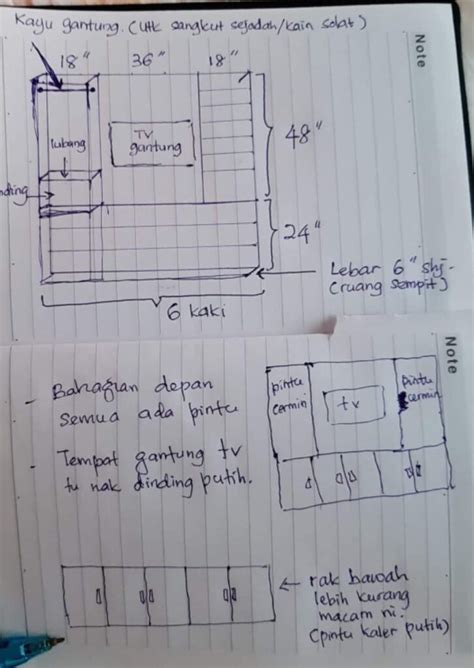 Kayu gantung. (Utk sangkut sejadah/kain solat)
Note
18" 36" 18"
lubang
TV
gantung
48"
nding
24"
Lebar 6" shj-
(ruang sempit)
6 kaki
Note
- Bahagian depan
semua ada pintu
- Tempat gantung tv
tu nak dinding putih.
pintu
cermin
tv
pintu
cermin
← rak bawah
lebih kurang
macam ni.
(pintu kaler putih)